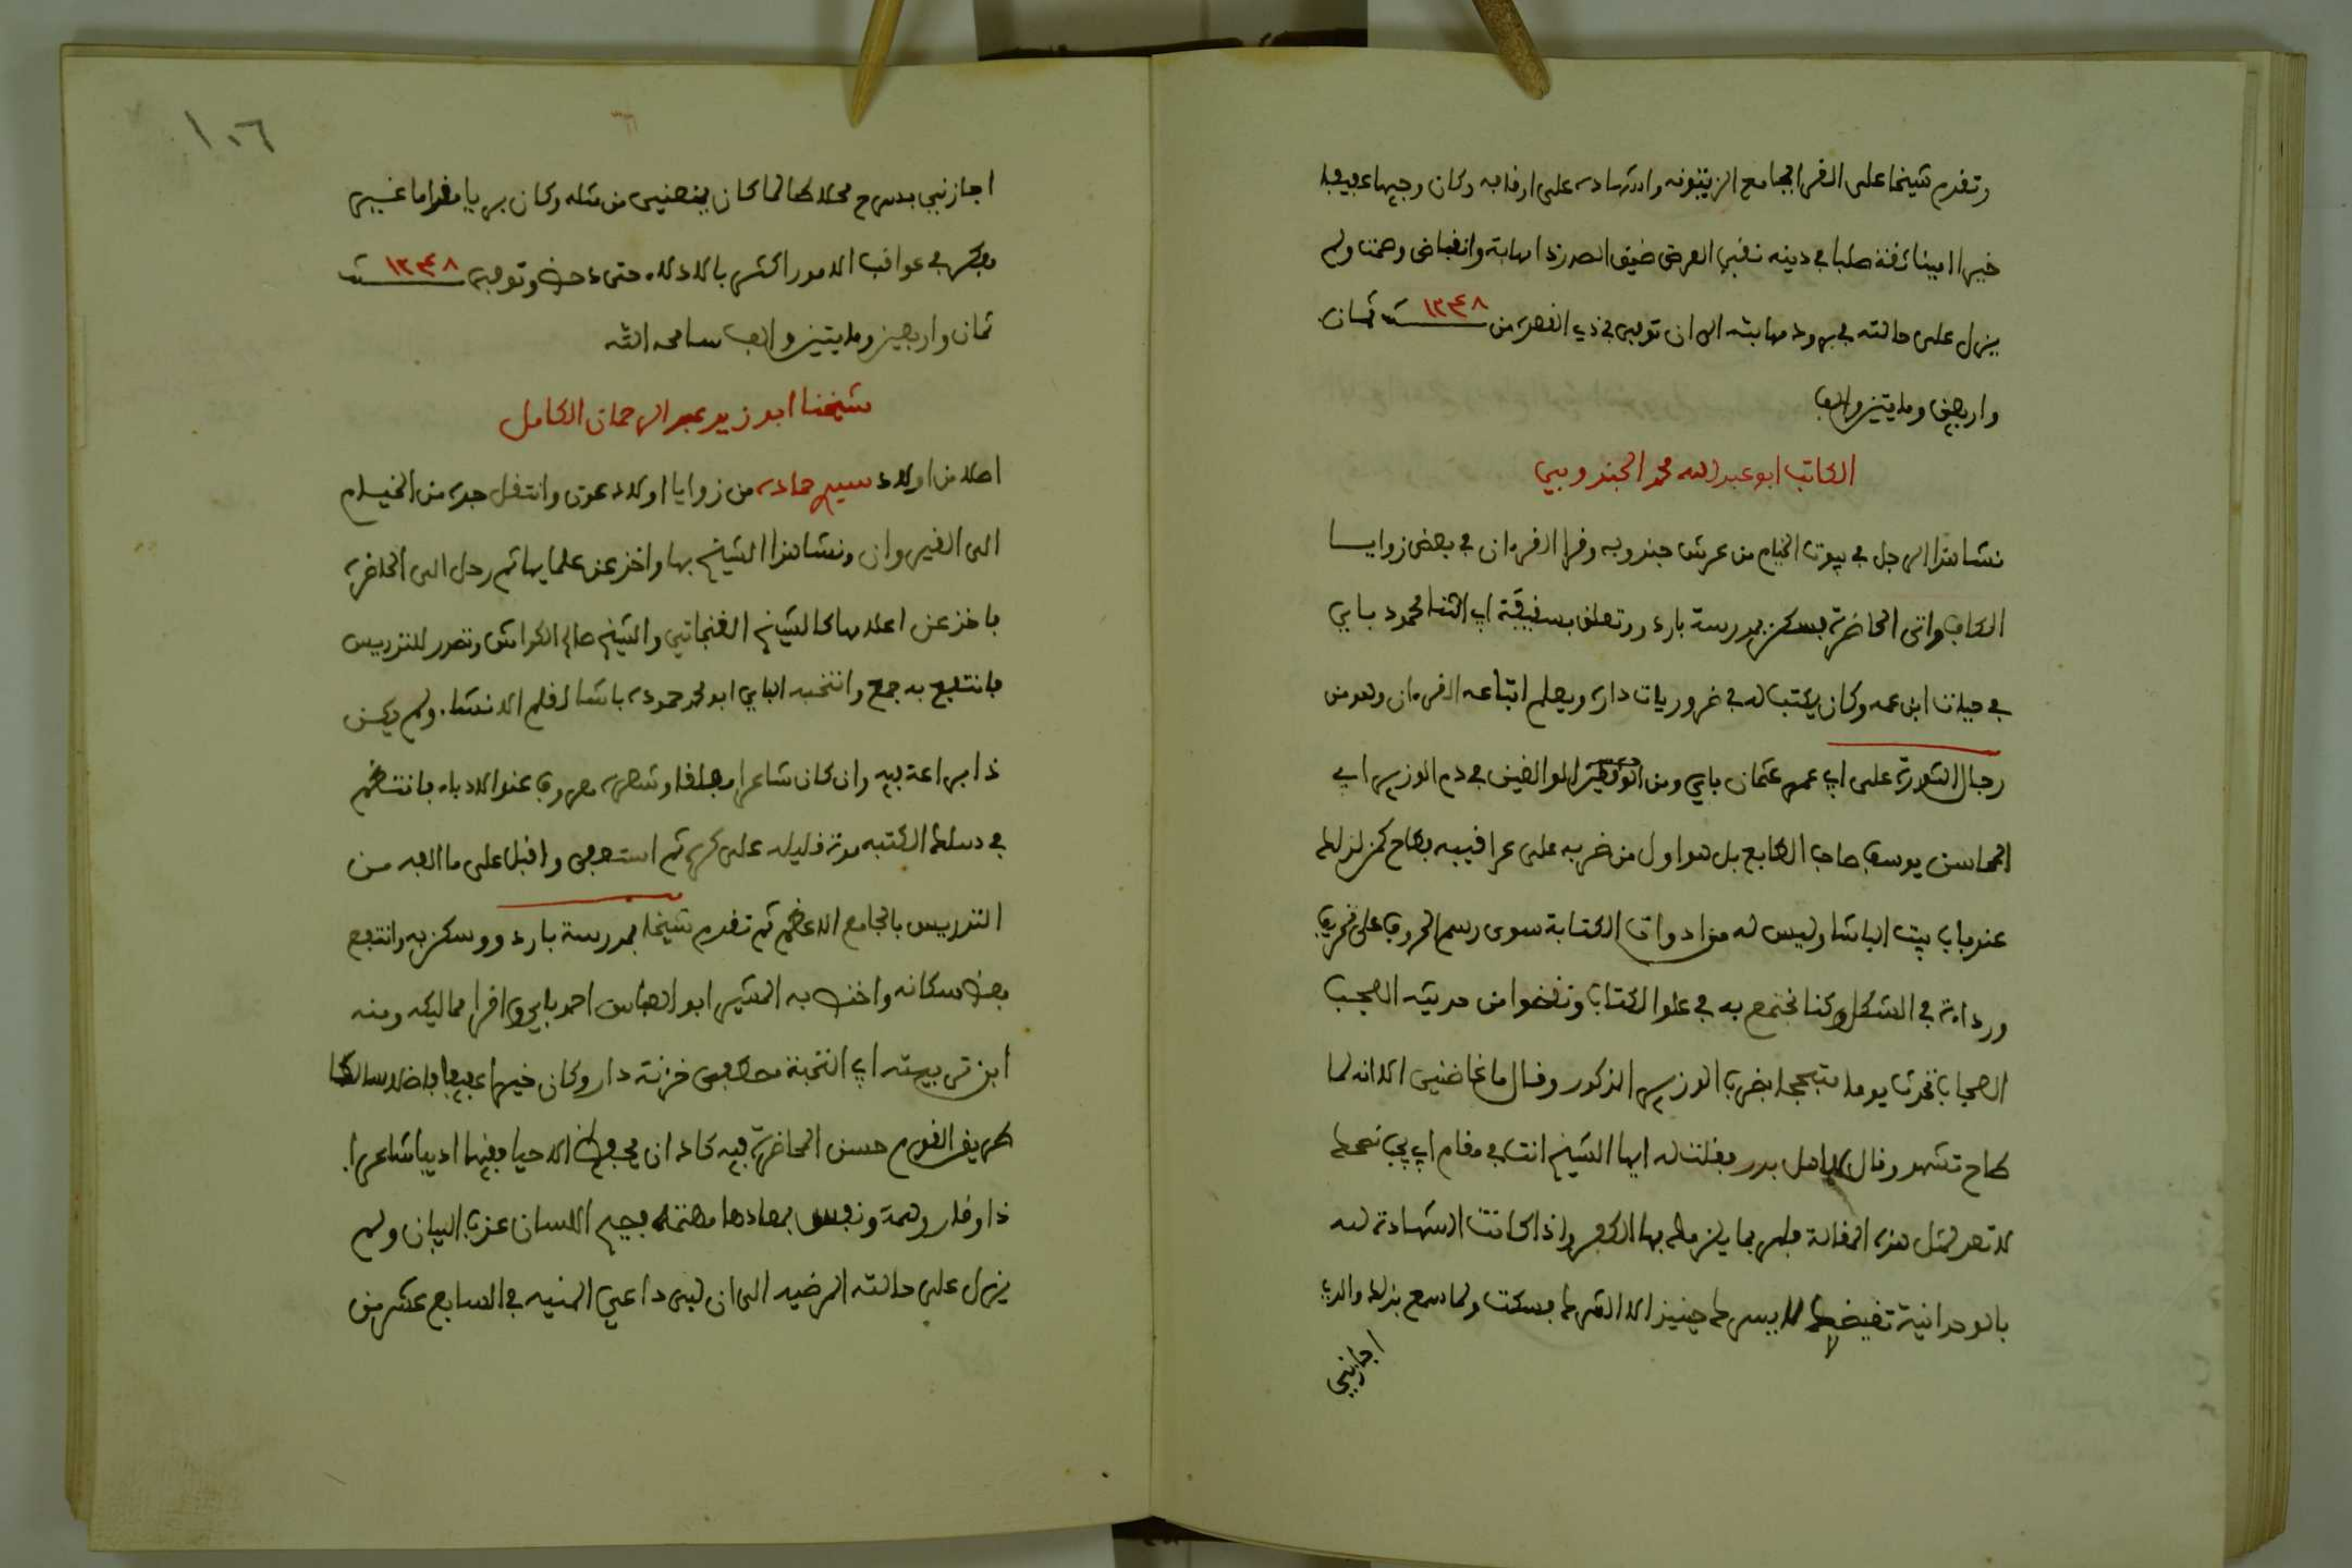 وتقدم شيخا على القراء بجامع الزيتونه والشهادة على اوقافه وكان وجيها عفيفا
خيرا امينا ثقة صلبا في دينه نقي العرض ضيق الصدر ذا مهابة وانقباض وهمة ولم
يزل على حالته في برود مهابته الى ان توفي في ذي القعدة من سنة ١٢٤٨ ثمان
واربعين ومايتين والف
الكاتب ابو عبد الله محمد الجندوبي
نشا هذا الرجل في بيوت الخيام من عرش جندوبه وقرا القرءان في بعض زوايا
الكاف واتى الحاضرة فسكن بمدرسة باردو وتعلق بسفيقة ابي الثنا محمود باي
في حياة ابن عمه وكان يكتب له في ضروريات داره ويعلم اتباعه القرءان وهو من
رجال الثورة على ابي عمرو عثمان باي ومن الموالفين في دم الوزير ابي
المحاسن يوسف صاحب الطابع بل هو اول من ضربه على عراقيبه فطاح كمن لزلط
عند باب بيت الباشا وليس له من ادوات الكتابة سوى رسم الحروف على تحريف
ورداءة في الشكل وكنا نجتمع به في علو الكتاب ونقضوا من حديثه العجب
العجاب فتحدث يوما متبجحا بضرب الوزير المذكور وقال ما غاضني الا انه لما
طاح تشهد وقال ياهل بدر فقلت له ايها الشيخ انت في مقام اب يجب نصحك
لا تعد لمثل هذه المقالة فلربما يلزمك بها الكفر واذا كانت الشهادة لله
بالوحدانية تغيضك لا يسرك حينئذ الا الشرك فسكت ولما سمع بذلك والدي
اجازني
١٠٦
٣٦
اجازني بمدح محلك طالما كان ينهني من مثله وكان بريا مقداما غير
مفكر في عواقب الامور اكثر بالادلاه حتى دحض وتوفي سنة ١٢٤٨
ثمان واربعين ومايتين والف سامحه الله
شيخنا ابو زيد عبد الرحمان الكامل
اصله من اولاد سيدي حمادة من زوايا اولاد عون وانتقل جده من الخيام
الى القيروان ونشا هذا الشيخ بها واخذ عن علمايها ثم رحل الى الحاضرة
فاخذ عن اعلامها كالشيخ الغنجاتي والشيخ صالح الكواش وتصدر للتدريس
فانتفع به جمع وانتخبه الباي ابو محمد حموده باشا لقلم الانشا ولم يكن
ذا براعة فيه وان كان شاعرا مفلقا وشعره معروف عند الادباء فانتظم
في سلك الكتبه مدة قليله على كره ثم استعفى واقبل على ما الفه من
التدريس بالجامع الاعظم ثم تقدم شيخا بمدرسة باردو وسكن به وانتفع
بعض سكانه واختص به المشير ابو العباس احمد باي واقرا مماليكه ومنه
ابن تربيته ابي النخبة مصطفى خزنة دار وكان خيرا عفيفا فاضلا سالكا
طريق القوم حسن المحاضرة فيه كاد ان يحفظ الاحيا فقيها اديبا شاعرا
ذا وقار وهمة ونفس بمعادها مهتمة فصيح اللسان عذب البيان ولم
يزل على حالته المرضيه الى ان لبى داعي المنيه في السابع عشر من